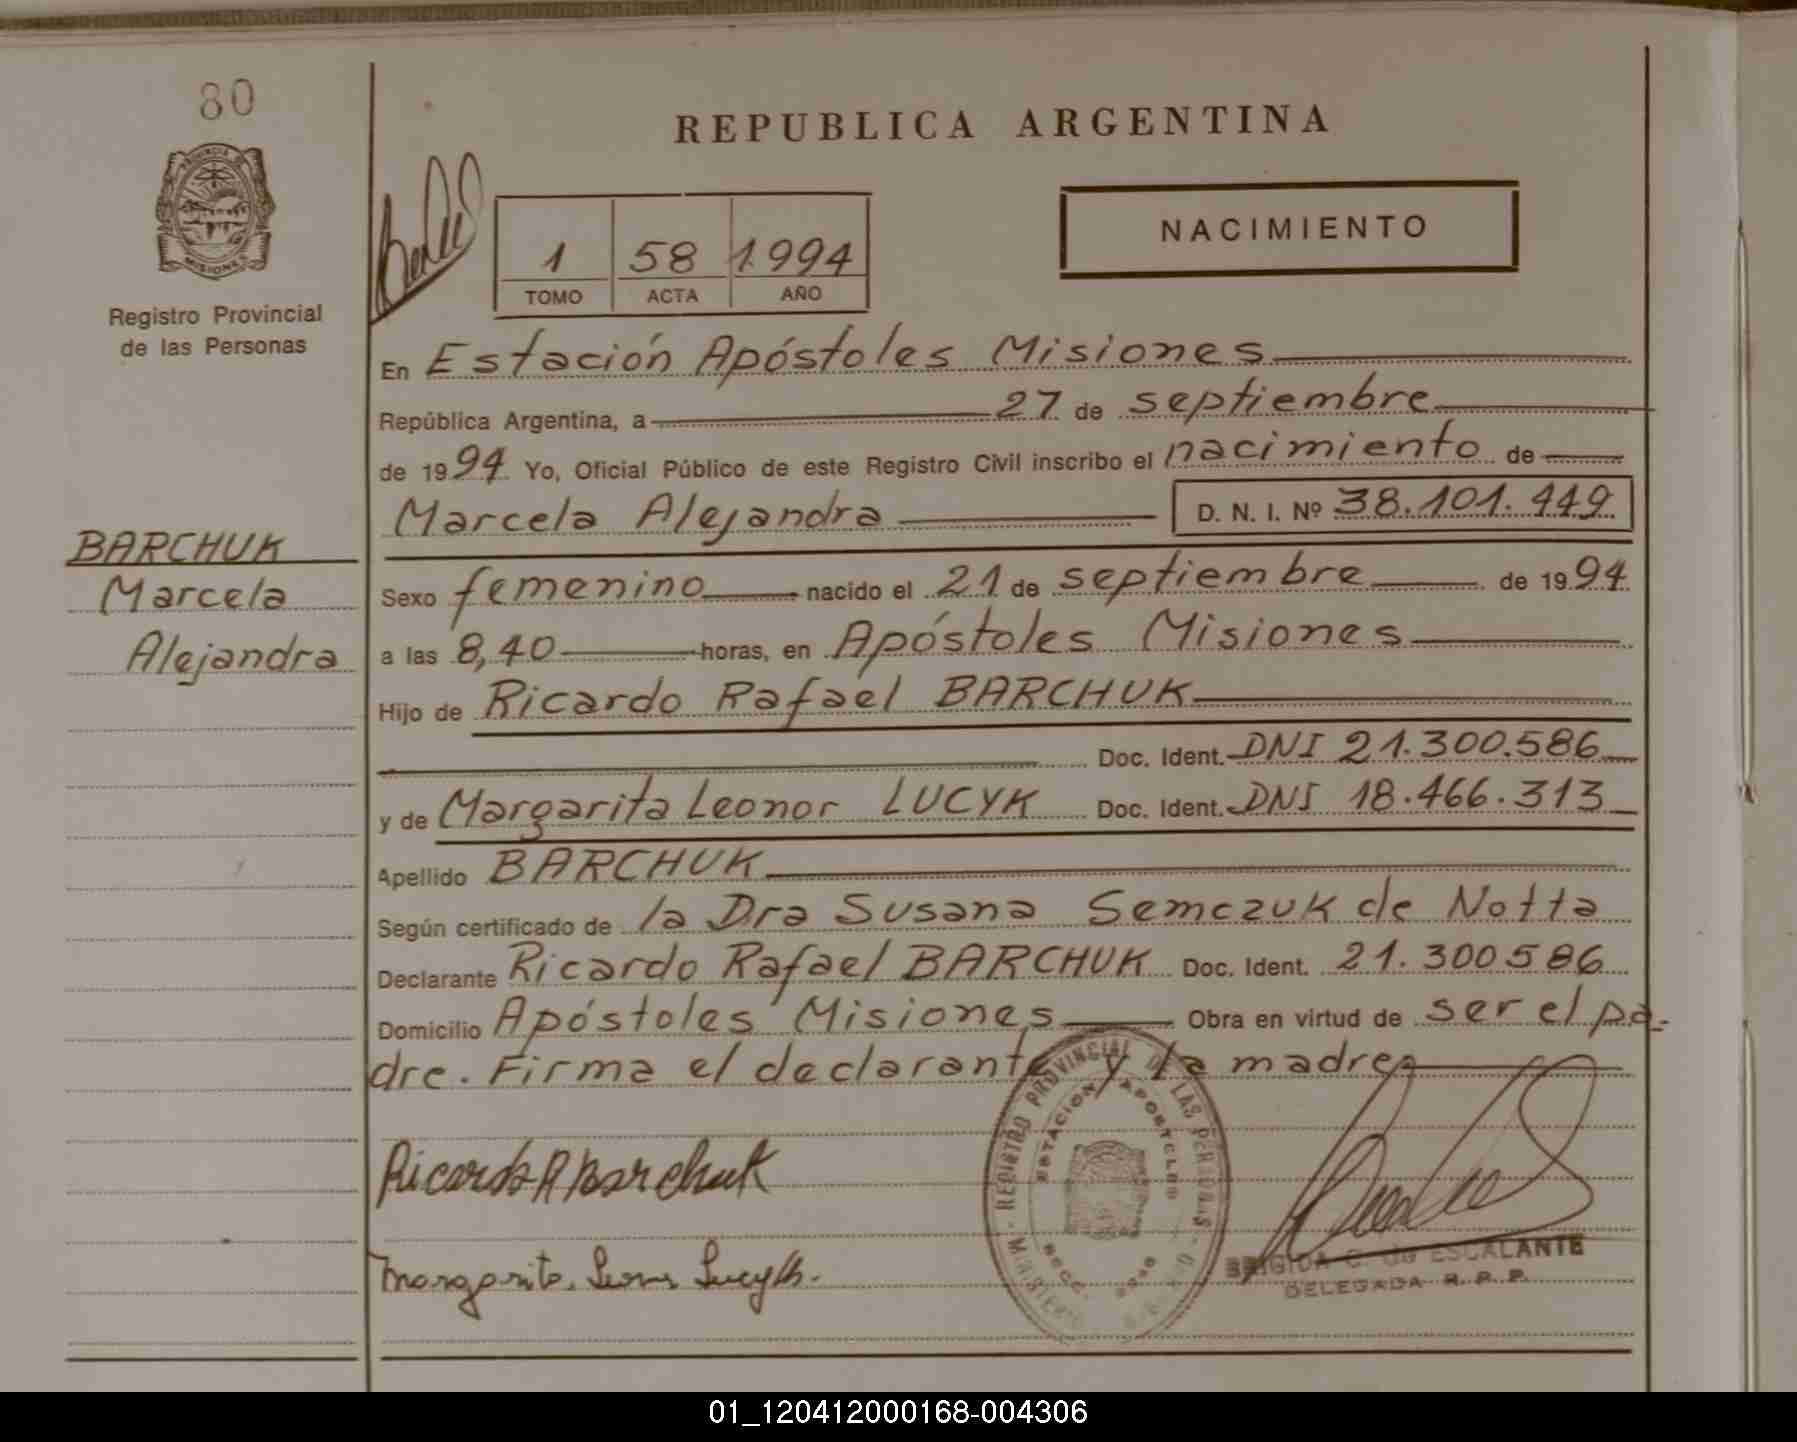 80
REPUBLICA ARGENTINA
PROVINCIA DE
MISIONES
Registro Provincial
de las Personas
1 58 1.994
TOMO ACTA AÑO
NACIMIENTO
En Estación Apóstoles Misiones
República Argentina, a 27 de septiembre
de 1994 Yo, Oficial Público de este Registro Civil inscribo el nacimiento de
Marcela Alejandra D. N. I. Nº 38.101.449
BARCHUK
Marcela
Alejandra
Sexo femenino nacido el 21 de septiembre de 1994
a las 8,40 horas, en Apóstoles Misiones
Hijo de Ricardo Rafael BARCHUK
Doc. Ident. DNI 21.300.586
y de Margarita Leonor LUCYK Doc. Ident. DNI 18.466.313
Apellido BARCHUK
Según certificado de la Dra Susana Semczuk de Notta
Declarante Ricardo Rafael BARCHUK Doc. Ident. 21.300586
Domicilio Apóstoles Misiones Obra en virtud de ser el pa-
dre. Firma el declarante y la madre
REGISTRO PROVINCIAL DE LAS PERSONAS
ESTACION APOSTOLES
MINISTERIO
Ricardo R Barchuk
Margarita Leonor Lucyk.
BRIGIDA C. de ESCALANTE
DELEGADA R. P. P.
01_120412000168-004306